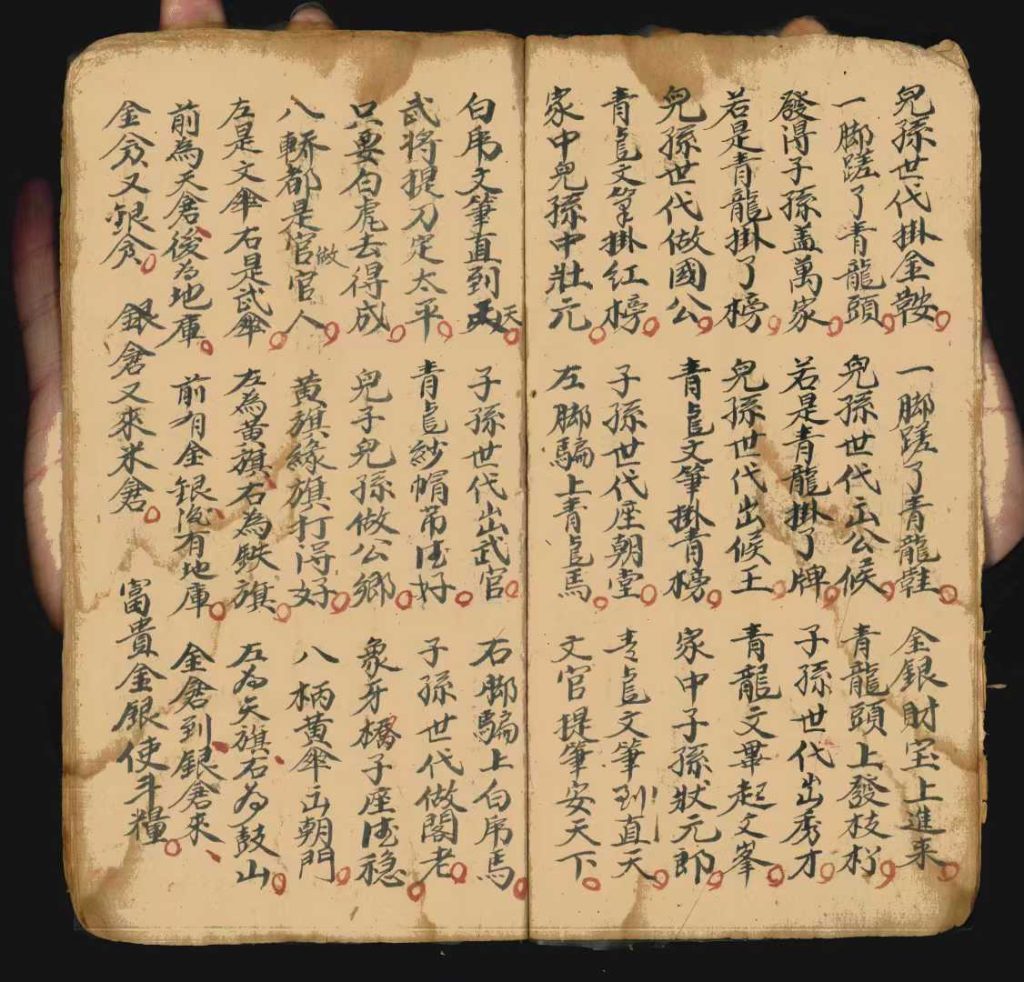 兒孫世代掛金鞍 一脚蹉了青龍鞋 金銀財宝上進来
一脚蹉了青龍頭 兒孫世代出公候 青龍頭上發枝杉
發得子孫盖萬家 若是青龍掛了牌 子孫世代出秀才
若是青龍掛了榜 兒孫世代出候王 青龍文畢起文峯
兒孫世代做國公 青𪚥文筆掛青榜 家中子孫狀元郎
青𪚥文筆掛紅榜 子孫世代座朝堂 青𪚥文筆到直天
家中兒孫中壯元 左脚騙上青𪚥馬 文官提筆安天下
白乕文筆直到天 子孫世代出武官 右脚騙上白乕馬
武将提刀定太平 青𪚥紗帽吊得好 子孫世代做閣老
只要白虎去得成 兒子兒孫做公鄉 象牙橋子座得穏
八轎都是官做官人 黄旗緣旗打得好 八柄黄傘出朝門
左是文傘右是武傘 左為黄旗右為鉄旗 左為矢旗右為鼓山
前為天倉後为地庫 前有金銀后有地庫 金倉到銀倉来
金倉又銀倉 銀倉又來米倉 富貴金銀使斗糧